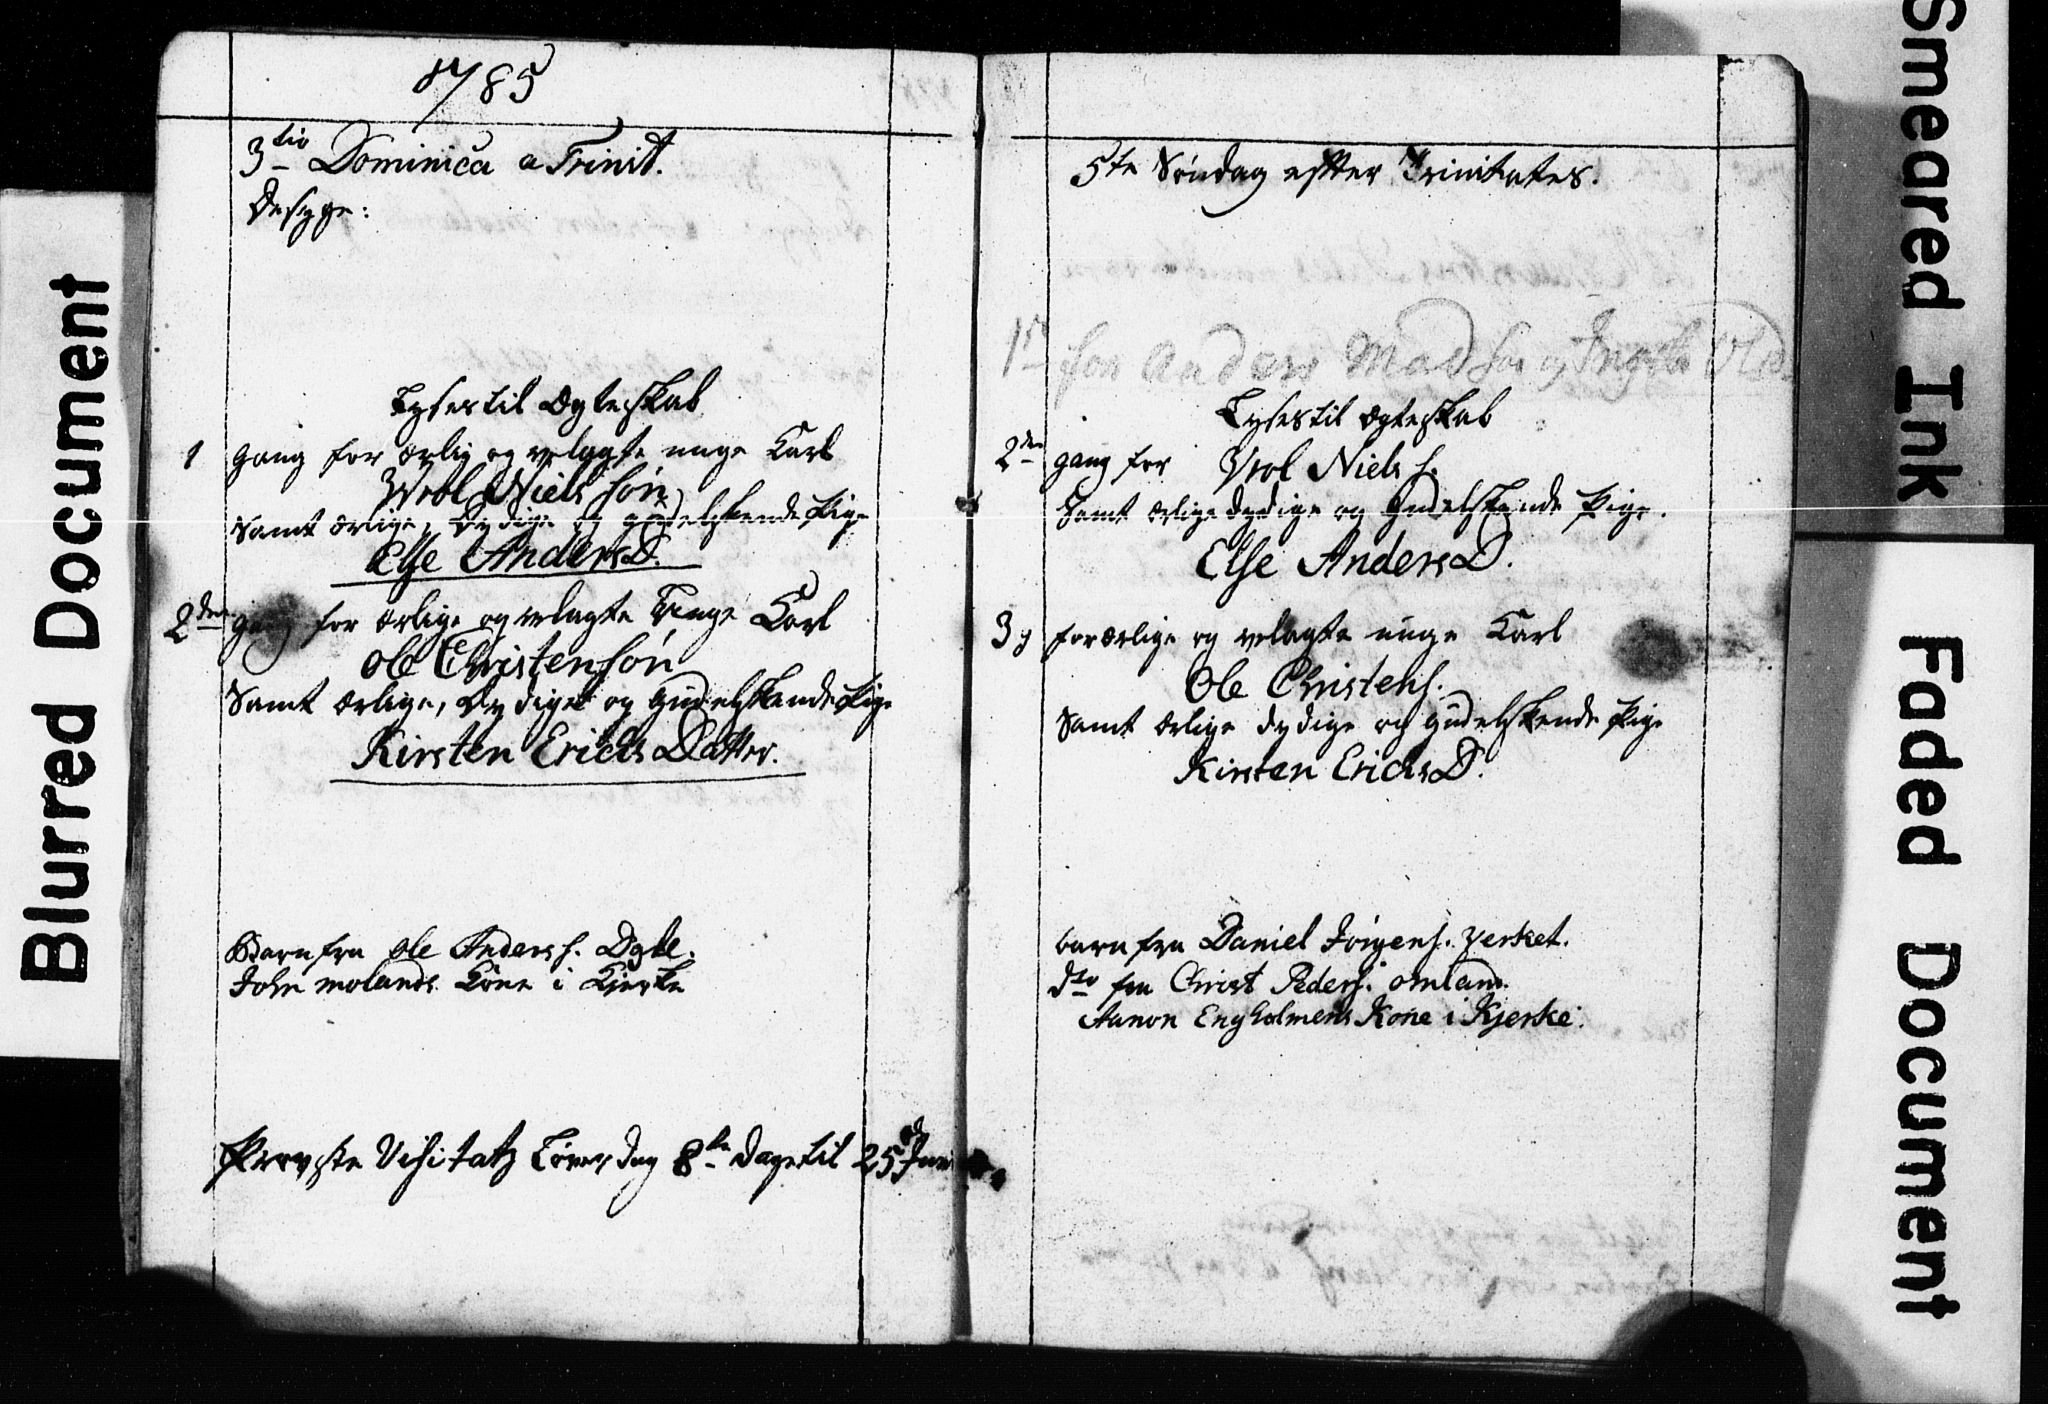 1785
3tio Dominica a Trinit.
De syge:
Lyses til Ægteskab
1 gang for ærlig og velagte unge Karl
Wrol Niels søn
Samt ærlige, Dydige og gudelskende Pige
Else AndersD.
2den gang for ærlige og velagte Unge Karl
Ole Christensøn
Samt ærlige, Dydige og gudelskende Pige
Kirsten Erichs Datter.
Barn fra Ole Anders s.
John molands Kone i Kjerke
Provste Visitatz Løverdag 8te dage til 25de Juni
5te Søndag efter Trinitates.
1ste for Anders Madsen og Ols
Lyses til Ægteskab
2den gang for Wrol Niels s.
Samt ærlige dydige og Gudelskende Pige.
Else AndersD.
3g for ærlige og velagte unge Karl
Ole Christens.
Samt ærlige dydige og gudelskende Pige
Kirsten ErichsD.
barn fra Daniel Jörgens. Verket.
dto fra Christ Peders. omland.
Aanon Engholmens Kone i Kjerke.
Blurred Document
Smeared Ink
Faded Document